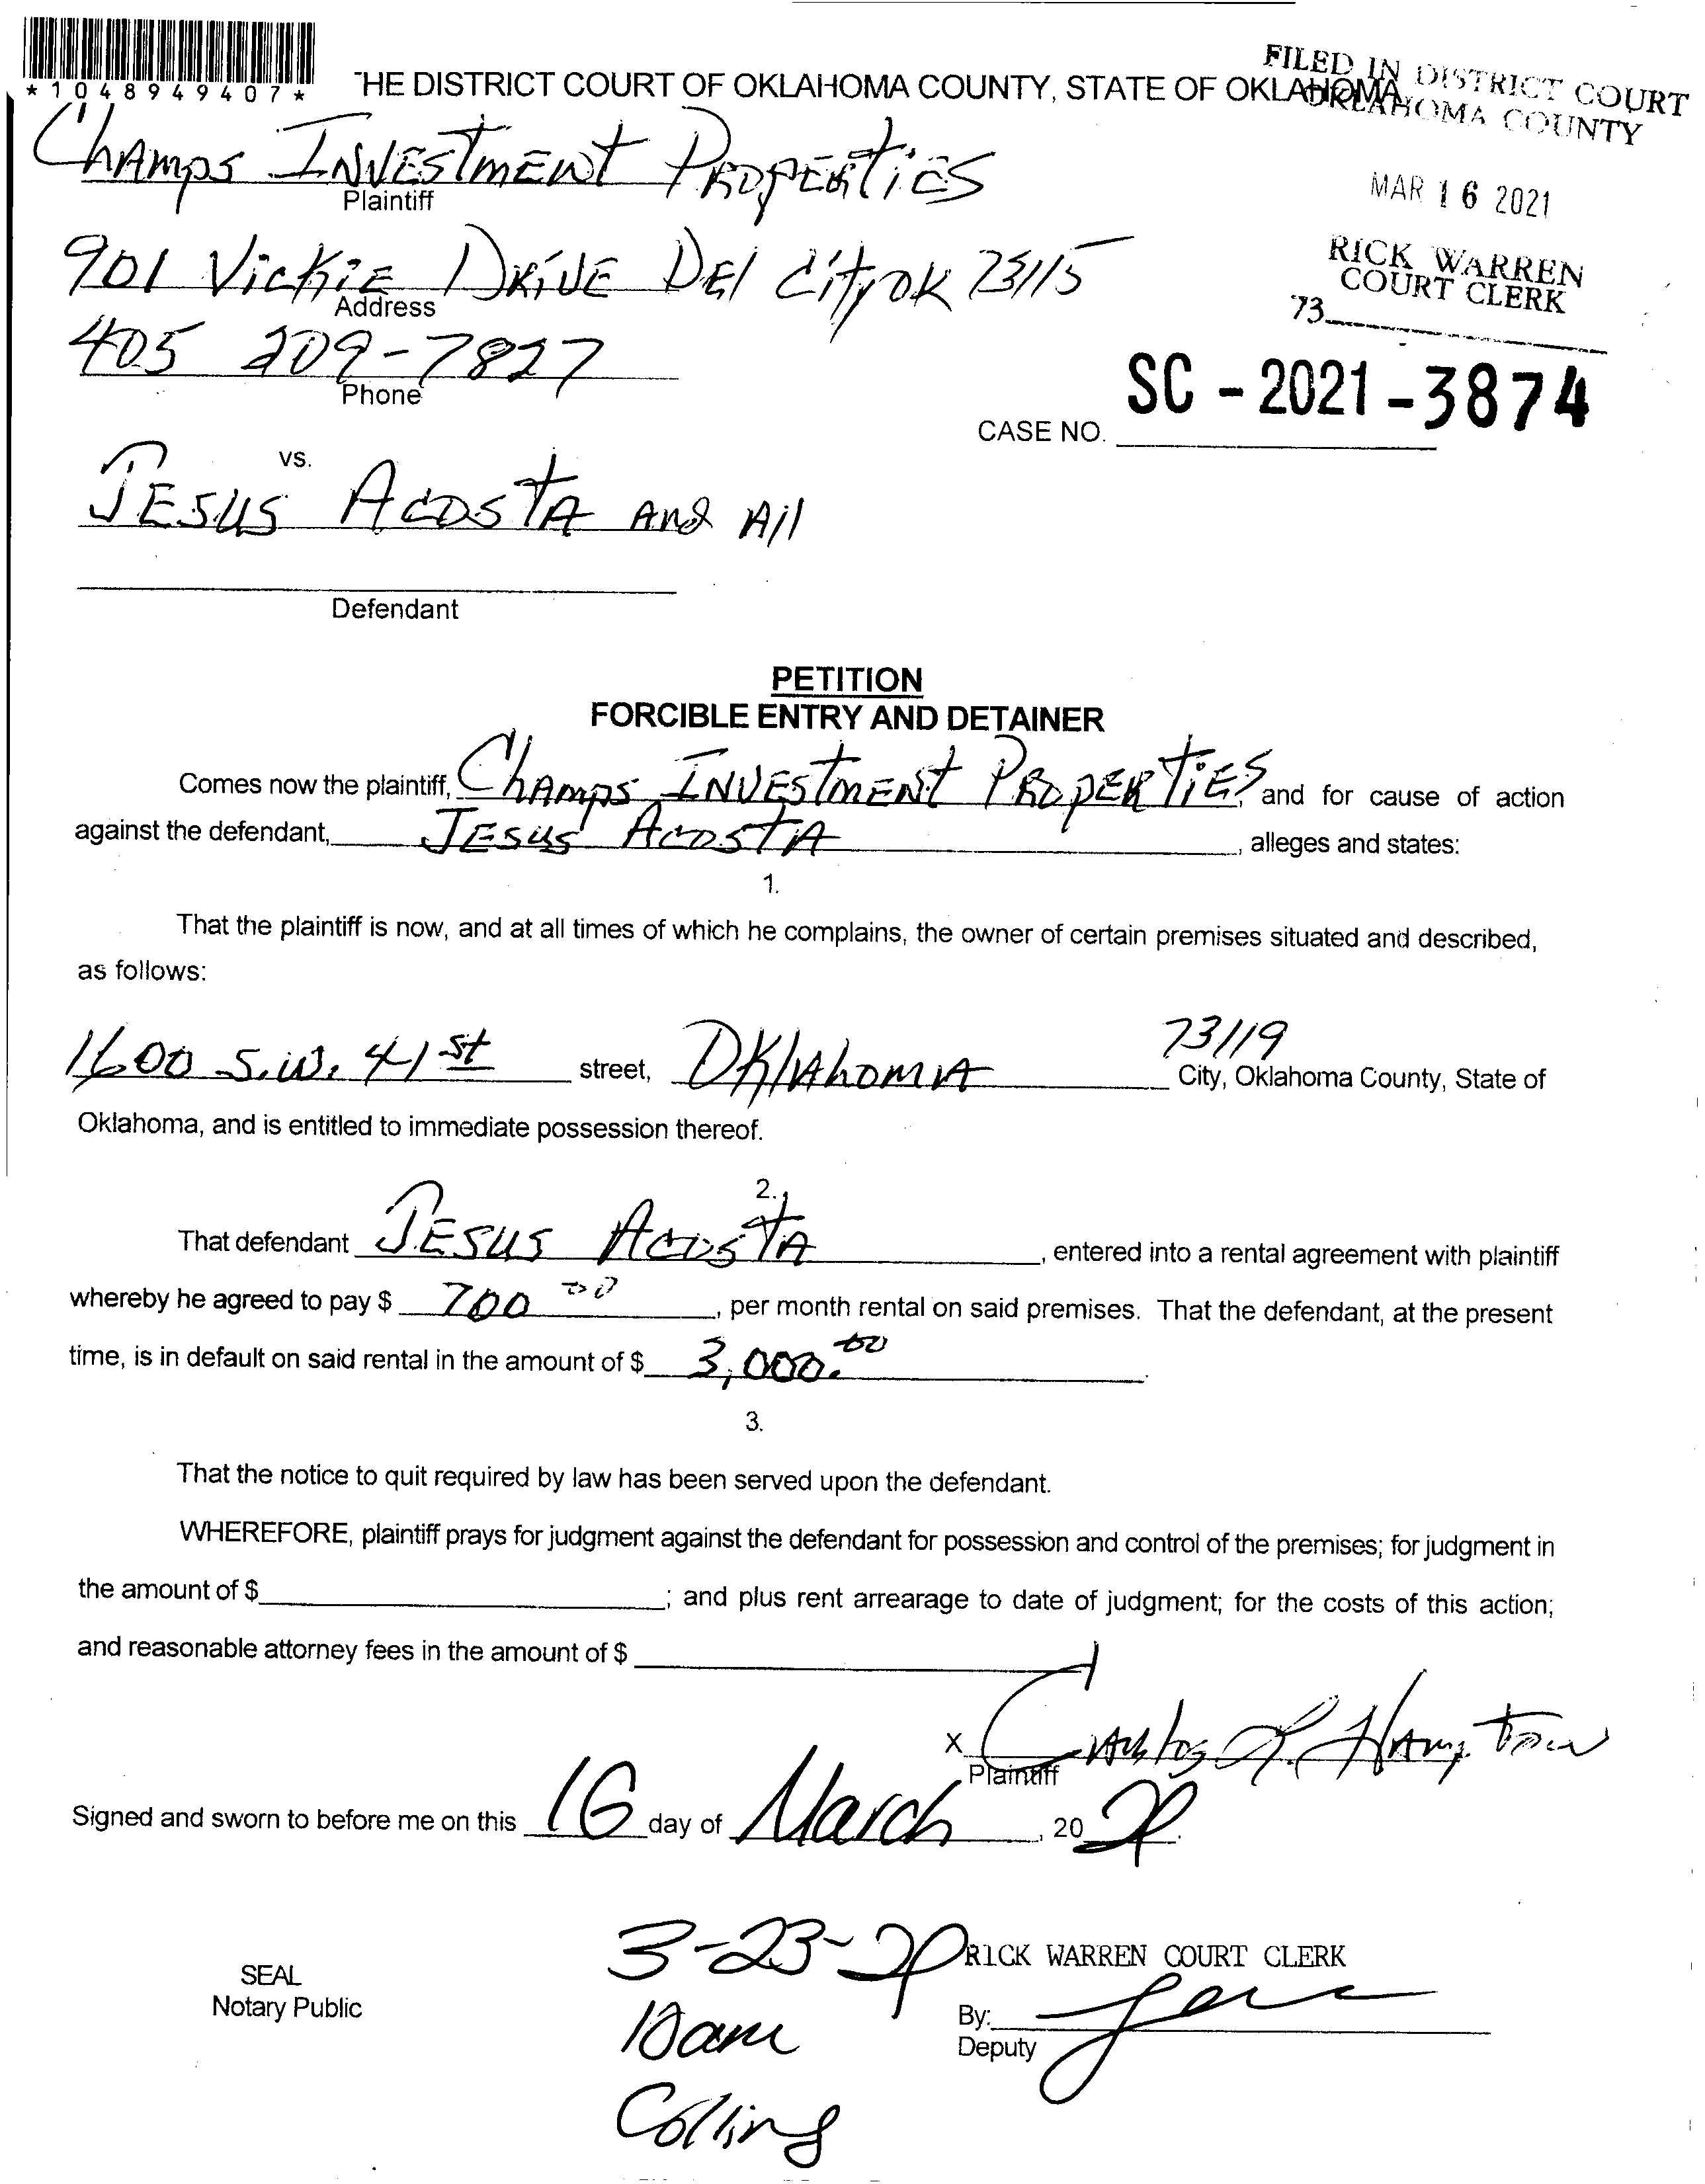 *1048949407*
THE DISTRICT COURT OF OKLAHOMA COUNTY, STATE OF OKLAHOMA
FILED IN DISTRICT COURT
OKLAHOMA COUNTY
Champs Investment Properties
Plaintiff
MAR 16 2021
901 Vickie Drive Del City OK 73115
Address
RICK WARREN
COURT CLERK
73
405 209-7827
Phone
SC - 2021 - 3874
CASE NO.
vs.
Jesus Acosta and All
Defendant
PETITION
FORCIBLE ENTRY AND DETAINER
Comes now the plaintiff, Champs Investment Properties, and for cause of action
against the defendant, Jesus Acosta, alleges and states:
1.
That the plaintiff is now, and at all times of which he complains, the owner of certain premises situated and described,
as follows:
73119
1600 S.W. 41st street, Oklahoma City, Oklahoma County, State of
Oklahoma, and is entitled to immediate possession thereof.
2.
That defendant Jesus Acosta, entered into a rental agreement with plaintiff
whereby he agreed to pay $ 700 00, per month rental on said premises. That the defendant, at the present
time, is in default on said rental in the amount of $ 3,000.00.
3.
That the notice to quit required by law has been served upon the defendant.
WHEREFORE, plaintiff prays for judgment against the defendant for possession and control of the premises; for judgment in
the amount of $ ; and plus rent arrearage to date of judgment; for the costs of this action;
and reasonable attorney fees in the amount of $
X Carlos L. Hampton
Plaintiff
Signed and sworn to before me on this 16 day of March, 20
3-23-
RICK WARREN COURT CLERK
SEAL
Notary Public
10am
By:
Deputy
Collins